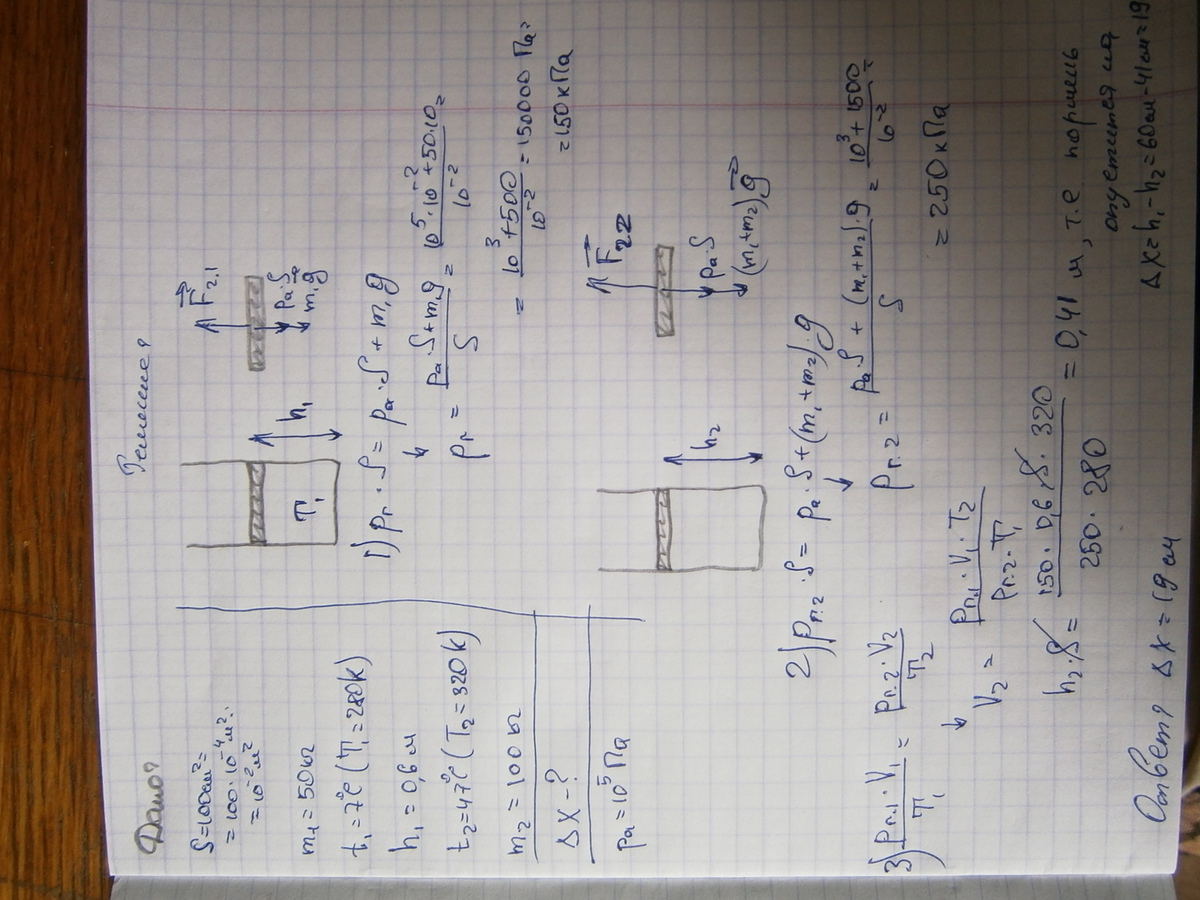 Дано:
S=100см²=
=100·10⁻⁴м²=
=10⁻²м²
m₁=50кг
t₁=7°C (T₁=280K)
h₁=0,6м
t₂=47°C (T₂=320K)
m₂=100кг
Δx-?
pₐ=10⁵Па
Решение:
T₁
h₁
F₂.₁
pₐ·S
m₁g
1) pг·S=pₐ·S+m₁g
pг = (pₐ·S+m₁g)/S = (10⁵·10⁻²+50·10)/10⁻² =
= (10³+500)/10⁻² = 150000 Па=
=150кПа
h₂
F₂₂
pₐS
(m₁+m₂)g
2) pг.₂·S= pₐ·S+(m₁+m₂)·g
pг.2 = (pₐS+(m₁+m₂)·g)/S = (10³+1500)/10⁻² =
=250кПа
3) (pг.1·V₁)/T₁ = (pг.2·V₂)/T₂
V₂ = (pг.1·V₁·T₂)/(pг.2·T₁)
h₂·S = (150·0,6·S·320)/(250·280) = 0,41 м, т.е поршень
опустится на
Δx=h₁-h₂=60см-41см=19
Ответ: Δx=19см